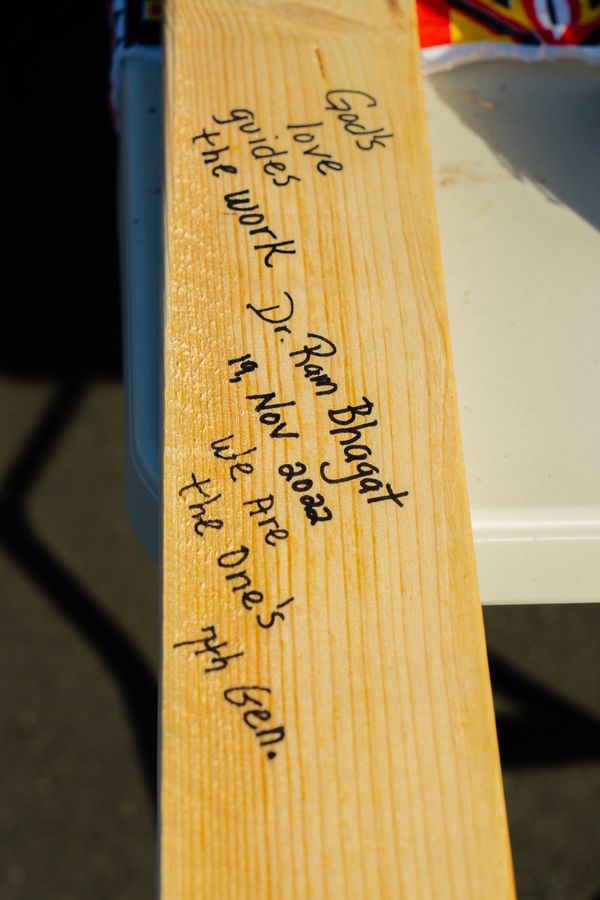 God's
love
guides
the work
Dr. Ram Bhagat
19, Nov 2022
We Are
the One's
7th Gen.